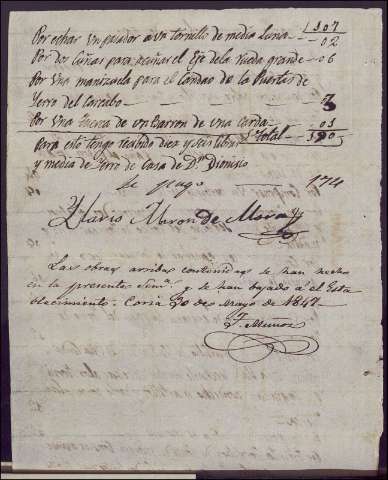 Por echar un pasador a un tornillo de media Luna 107
Por dos Cuñas para acuñar el Eje dela Rueda grande 02
Por una manezuela para el Candao de la Puertas de 06
Yerro del Corcubo
Por Una de un Barron de una Carda 01
Para esto tengo recibido diez y seis libras Total
y media de Yerro de Casa de Dn Dionisio
se pago 174
Ylario Moron de Mora
Las obras arribas contenidas se han hecho
en la presente y se han bajado a el Esta
blecimiento. Coria 30 de Mayo de 1847.
F. Muñoz